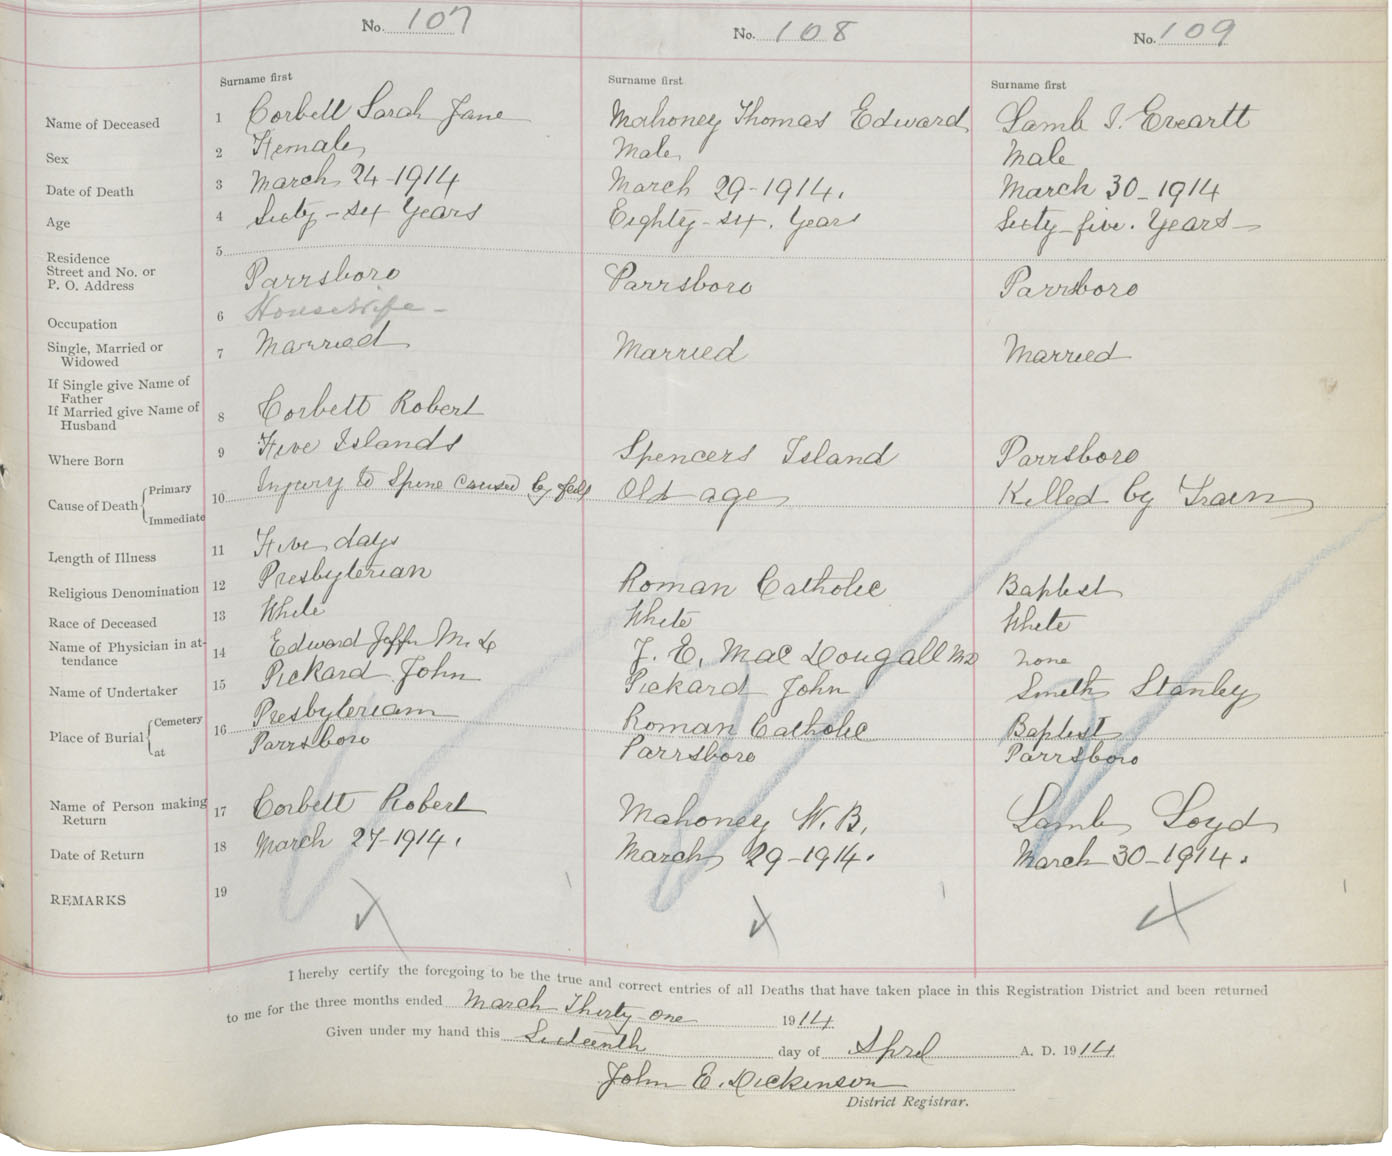 No. 107 No. 108 No. 109
Surname first Surname first Surname first
Name of Deceased 1 Corbett Sarah Jane Mahoney Thomas Edward Lamb I. Eveartt
Sex 2 Female Male Male
Date of Death 3 March 24-1914 March 29-1914. March 30-1914
Age 4 Sixty-six Years Eighty-six. Years Sixty-five. Years
Residence 5
Street and No. or
P. O. Address Parrsboro Parrsboro Parrsboro
Occupation 6 Housewife
Single, Married or 7 Married Married Married
Widowed
If Single give Name of
Father
If Married give Name of 8 Corbett Robert
Husband
Where Born 9 Five Islands Spencers Island Parrsboro
Cause of Death Primary 10 Injury to Spine caused by fall Old age Killed by Train
Immediate
Length of Illness 11 Five days
Religious Denomination 12 Presbyterian Roman Catholic Baptist
Race of Deceased 13 White White White
Name of Physician in at- 14 Edward M.D J. E. MacDougall MD none
tendance
Name of Undertaker 15 Pickard John Pickard John Smith Stanley
Place of Burial Cemetery 16 Presbyterian Roman Catholic Baptist
at Parrsboro Parrsboro Parrsboro
Name of Person making 17 Corbett Robert Mahoney W. B. Lamb Loyd
Return
Date of Return 18 March 27-1914. March 29-1914. March 30-1914.
REMARKS 19
I hereby certify the foregoing to be the true and correct entries of all Deaths that have taken place in this Registration District and been returned
to me for the three months ended March Thirty-one 1914
Given under my hand this Sixteenth day of April A. D. 1914
John E. Dickinson
District Registrar.